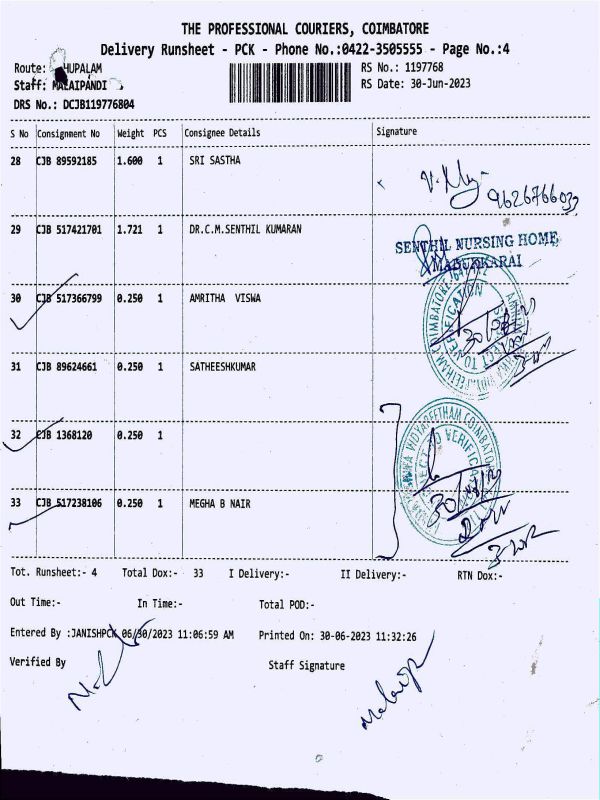 THE PROFESSIONAL COURIERS, COIMBATORE
Delivery Runsheet - PCK - Phone No.:0422-3505555 - Page No.:4
Route: HUPALAM
RS No.: 1197768
Staff: MALAIPANDI
RS Date: 30-Jun-2023
DRS No.: DCJB119776804
S No Consignment No Weight PCS Consignee Details Signature
28 CJB 89592185 1.600 1 SRI SASTHA
9626766032
29 CJB 517421701 1.721 1 DR.C.M.SENTHIL KUMARAN
SENTHIL NURSING HOME
MADUKKARAI
30 CJB 517366799 0.250 1 AMRITHA VISWA
31 CJB 89624661 0.250 1 SATHEESHKUMAR
32 CJB 1368120 0.250 1
33 CJB 517238106 0.250 1 MEGHA B NAIR
Tot. Runsheet:- 4 Total Dox:- 33 I Delivery:- II Delivery:- RTN Dox:-
Out Time:- In Time:- Total POD:-
Entered By :JANISHPCK 06/30/2023 11:06:59 AM Printed On: 30-06-2023 11:32:26
Verified By Staff Signature